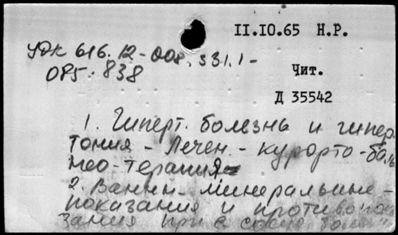 II.IO.65 Н.Р.
УДК 616.12-008.331.1-
ОР5: 838
Чит.
Д 35542
1. Гиперт. болезнь и гипер
тония - Лечен. - курорто-баль
нео-терапия
2. Ванны минеральные -
показания и противопока
зания при